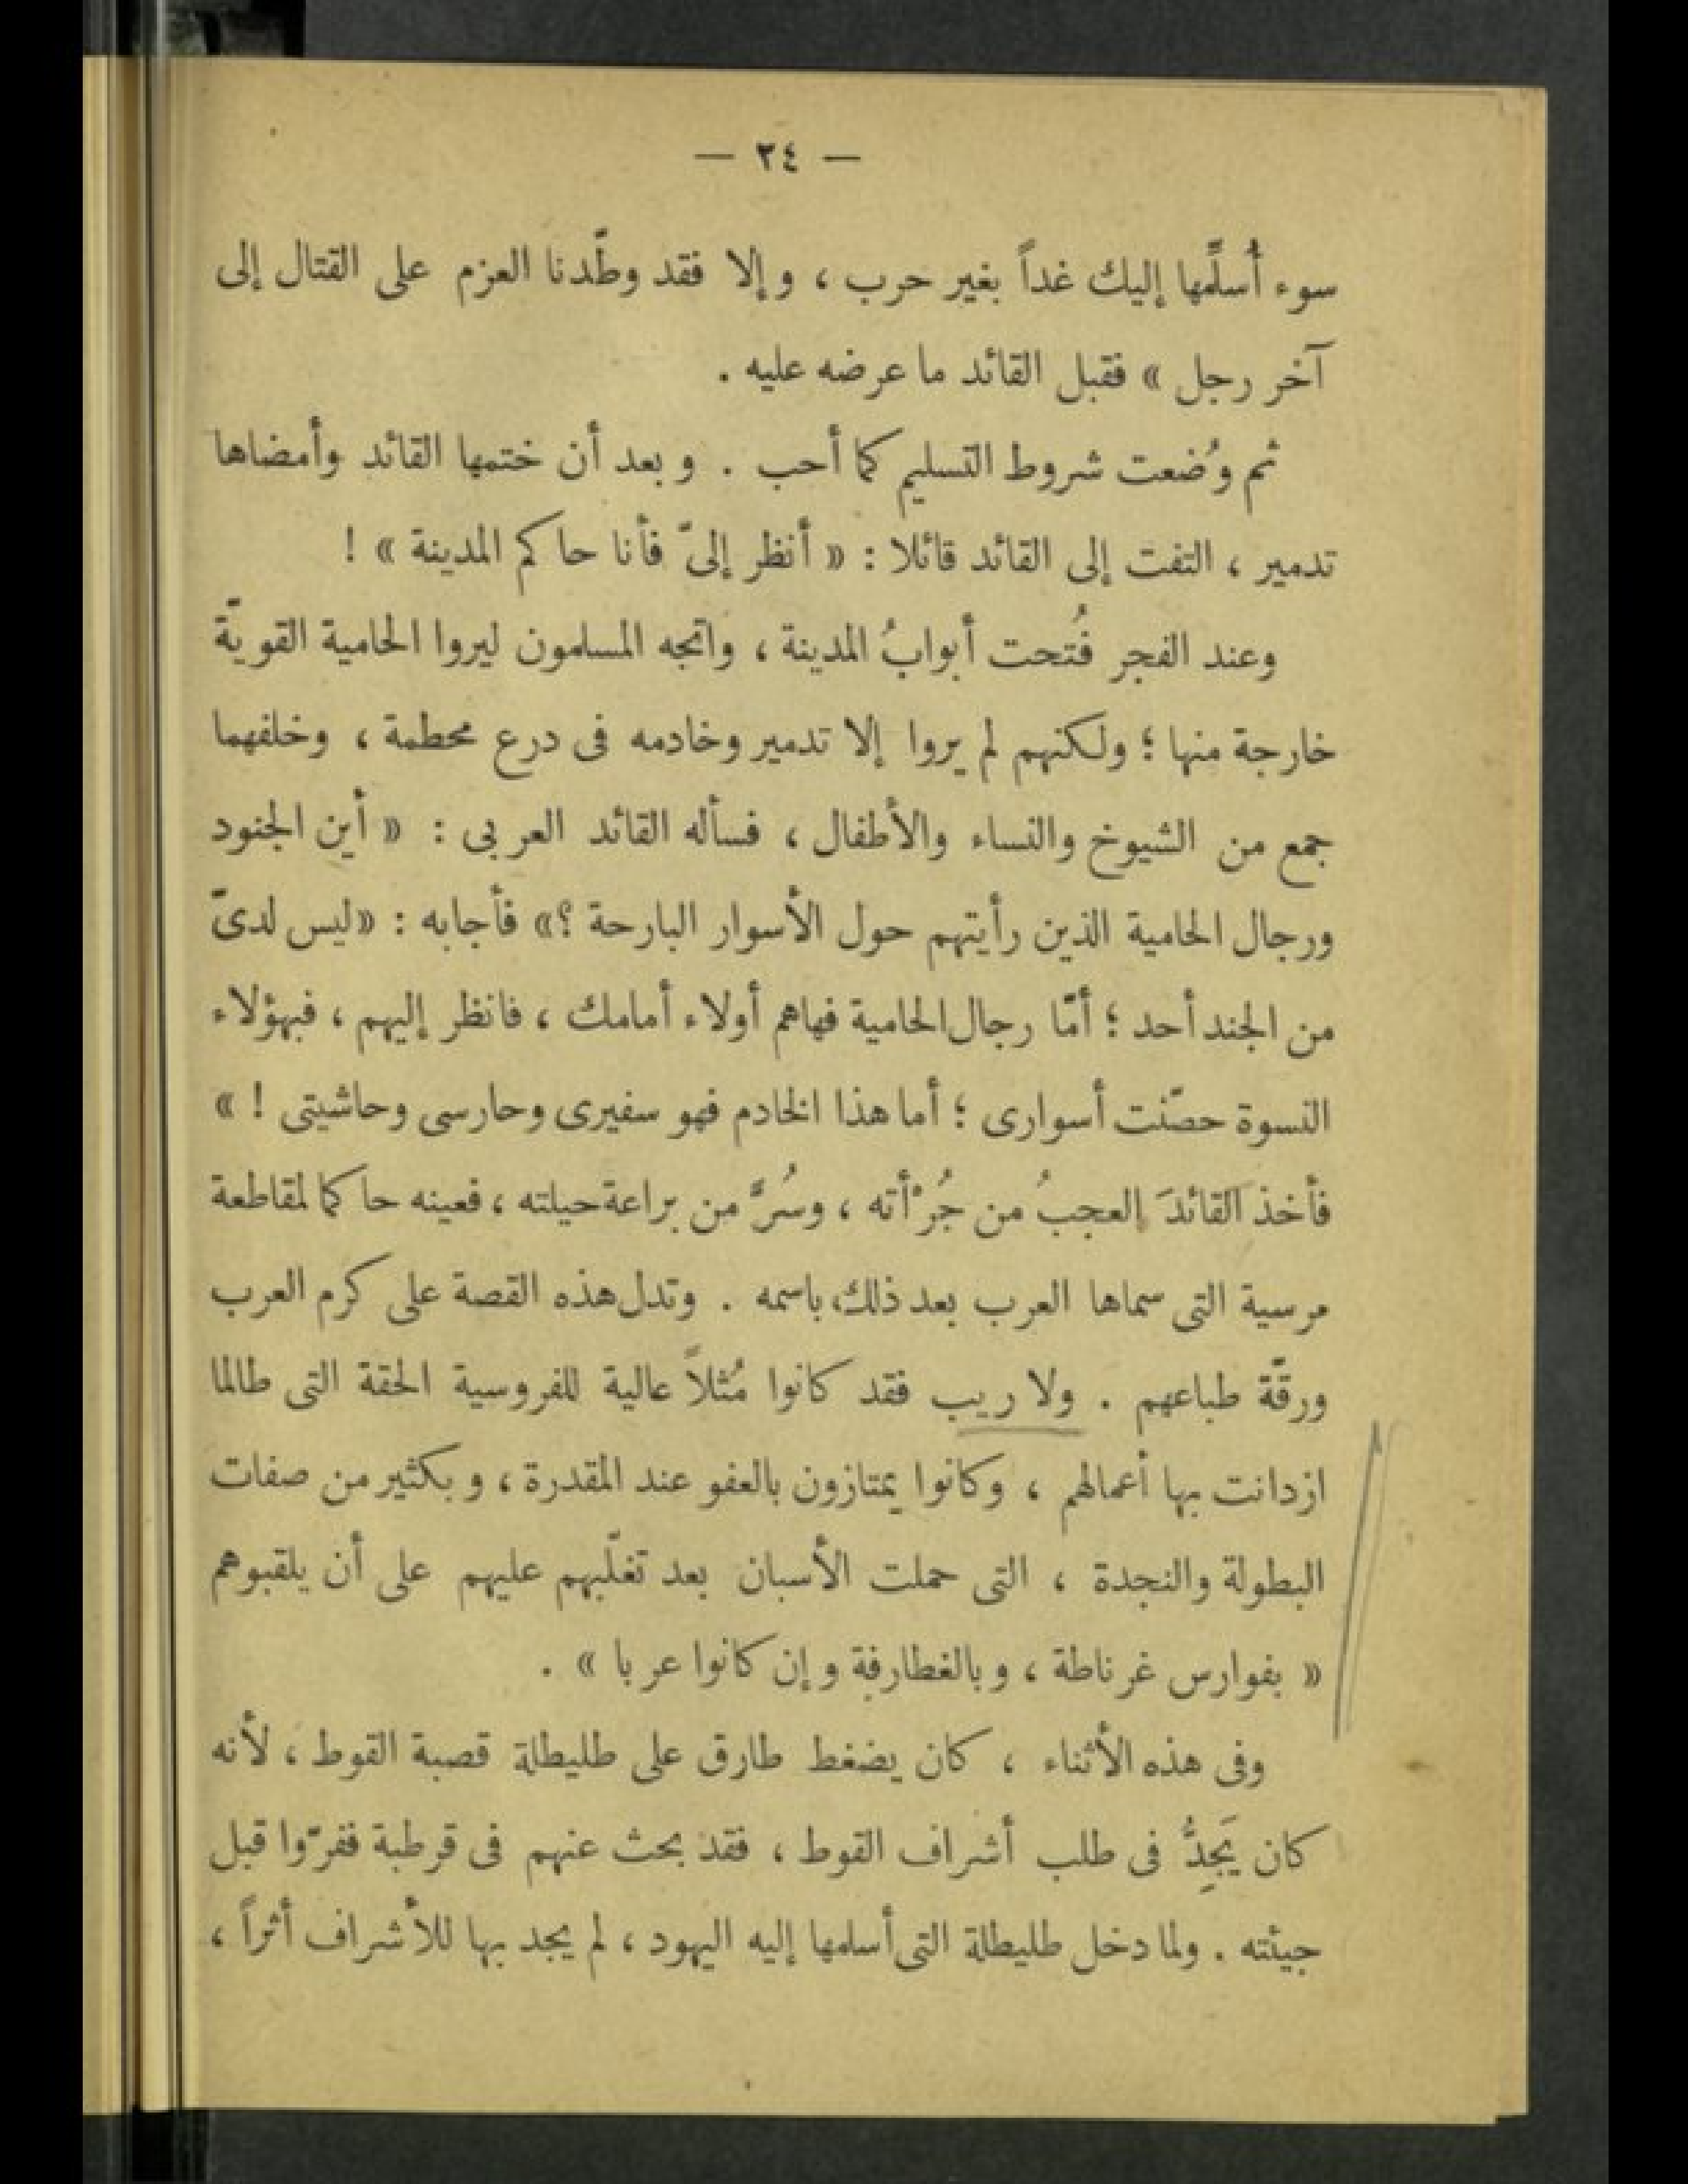 — ٢٤ —
سوء أُسلِّمها إليك غداً بغير حرب ، وإلا فقد وطّدنا العزم على القتال إلى
آخر رجل » فقبل القائد ما عرضه عليه .
ثم وُضعت شروط التسليم كما أحب . وبعد أن ختمها القائد وأمضاها
تدمير ، التفت إلى القائد قائلا : « أنظر إلىّ فأنا حاكم المدينة » !
وعند الفجر فُتحت أبوابُ المدينة ، واتجه المسلمون ليروا الحامية القويّة
خارجة منها ؛ ولكنهم لم يروا إلا تدمير وخادمه فى درع محطمة ، وخلفهما
جمع من الشيوخ والنساء والأطفال ، فسأله القائد العربى : « أين الجنود
ورجال الحامية الذين رأيتهم حول الأسوار البارحة ؟» فأجابه : «ليس لدىّ
من الجند أحد ؛ أمّا رجال الحامية فهاهم أولاء أمامك ، فانظر إليهم ، فبهؤلاء
النسوة حصّنت أسوارى ؛ أما هذا الخادم فهو سفيرى وحارسى وحاشيتى ! »
فأخذ القائدَ العجبُ من جُرْأته ، وسُرَّ من براعة حيلته ، فعينه حاكما لمقاطعة
مرسية التى سماها العرب بعد ذلك باسمه . وتدل هذه القصة على كرم العرب
ورقّة طباعهم . ولا ريب فقد كانوا مُثلاً عالية للفروسية الحقة التى طالما
ازدانت بها أعمالهم ، وكانوا يمتازون بالعفو عند المقدرة ، وبكثير من صفات
البطولة والنجدة ، التى حملت الأسبان بعد تغلّبهم عليهم على أن يلقبوهم
« بفوارس غرناطة ، وبالغطارفة وإن كانوا عربا » .
وفى هذه الأثناء ، كان يضغط طارق على طليطلة قصبة القوط ، لأنه
كان يَجِدُّ فى طلب أشراف القوط ، فقد بحث عنهم فى قرطبة ففرّوا قبل
جيئته . ولما دخل طليطلة التى أسلمها إليه اليهود ، لم يجد بها للأشراف أثراً ،